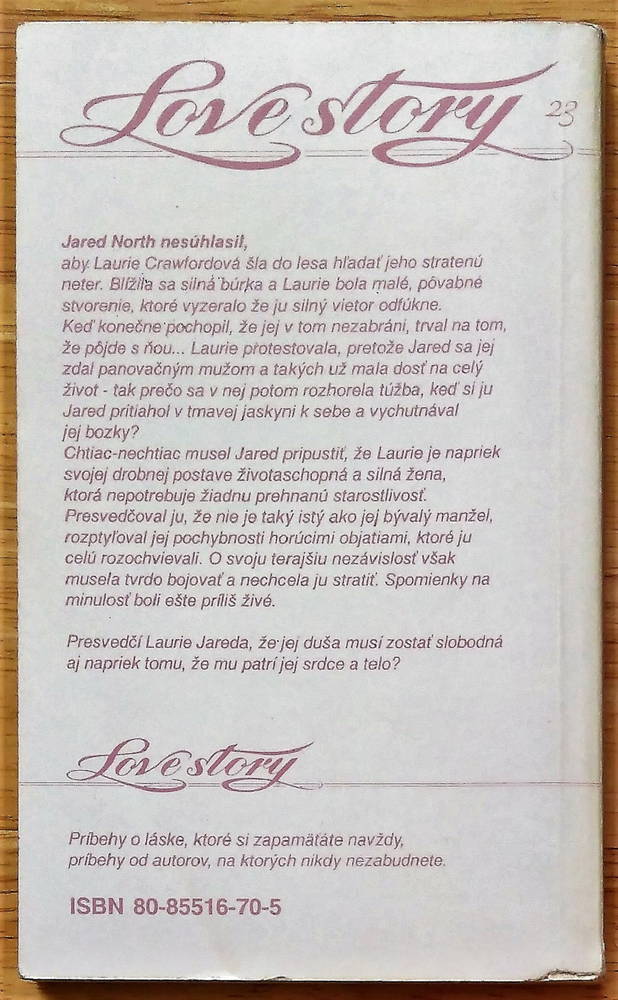 Love story
23
Jared North nesúhlasil,
aby Laurie Crawfordová šla do lesa hľadať jeho stratenú
neter. Blížila sa silná búrka a Laurie bola malé, pôvabné
stvorenie, ktoré vyzeralo že ju silný vietor odfúkne.
Keď konečne pochopil, že jej v tom nezabráni, trval na tom,
že pôjde s ňou... Laurie protestovala, pretože Jared sa jej
zdal panovačným mužom a takých už mala dosť na celý
život - tak prečo sa v nej potom rozhorela túžba, keď si ju
Jared pritiahol v tmavej jaskyni k sebe a vychutnával
jej bozky?
Chtiac-nechtiac musel Jared pripustiť, že Laurie je napriek
svojej drobnej postave životaschopná a silná žena,
ktorá nepotrebuje žiadnu prehnanú starostlivosť.
Presvedčoval ju, že nie je taký istý ako jej bývalý manžel,
rozptyľoval jej pochybnosti horúcimi objatiami, ktoré ju
celú rozochvievali. O svoju terajšiu nezávislosť však
musela tvrdo bojovať a nechcela ju stratiť. Spomienky na
minulosť boli ešte príliš živé.
Presvedčí Laurie Jareda, že jej duša musí zostať slobodná
aj napriek tomu, že mu patrí jej srdce a telo?
Love story
Príbehy o láske, ktoré si zapamätáte navždy,
príbehy od autorov, na ktorých nikdy nezabudnete.
ISBN 80-85516-70-5